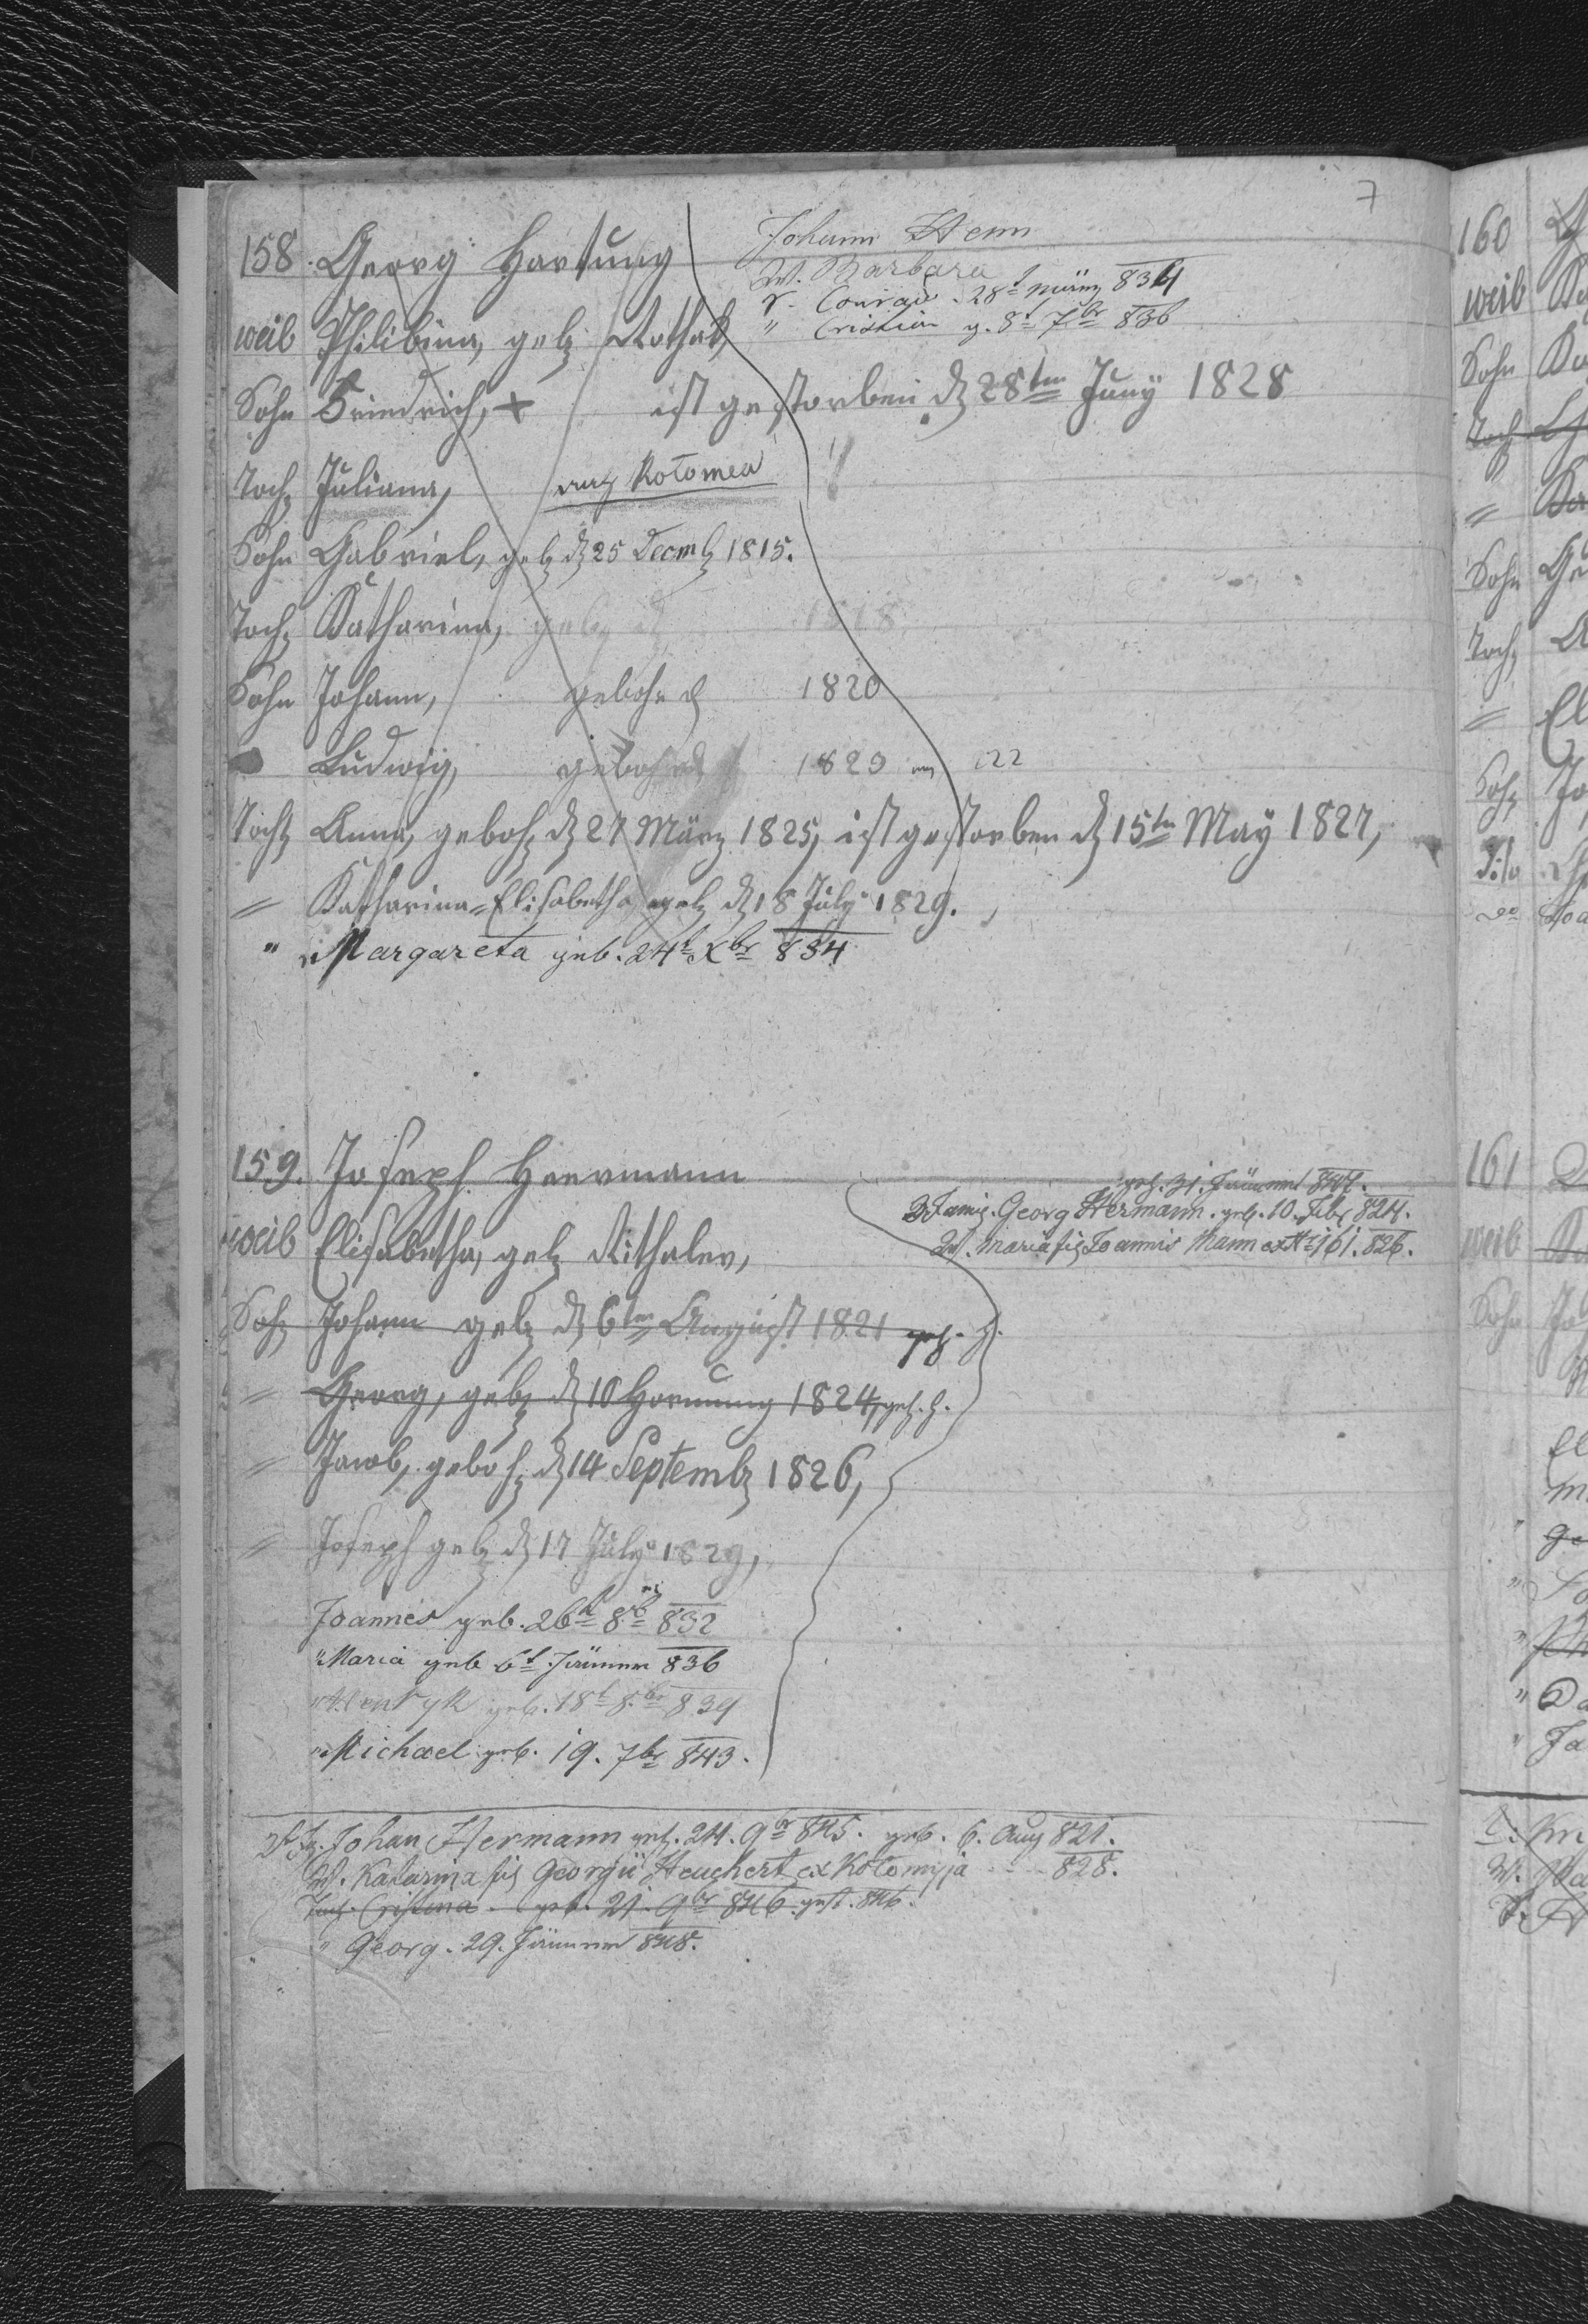 7
158. Georg Hartung
weib Philibina, geb Rothat,
Sohn Friedrich, + ist gestorben d 28ten Juny 1828
Toch Juliana, nach Kotomea
Sohn Gabriel, geb d 25 Decmb 1815.
Toch Katharina, geb d 1818
Sohn Johann, gebohr d 1820
Ludwig, gebohr d 1823 822
Tocht Anna, geboh d 27 März 1825, ist gestorben d 15ten May 1827,
" Katharina=Elisabetha geb d 18 July 1829.
" Margareta geb. 24t Xbr 834
Johann Henn
W. Barbara
Conrad. 28t März 834
" Cristian g. 8t 7br 836
159. Joseph Heermann
weib Elisabetha, geb Rithaler,
Soh Johann geb d 6ten August 1821 geh. h.
" Georg, geb d 10 Hornung 1824, geh. h.
" Jacob, geboh d 14 Septemb 1826,
" Joseph geb d 17 July 1829,
Joannes geb. 26t 8br 832
" Maria geb 6t Jänner 836
" Henryk geb. 18t 8br 839
" Michael geb. 19. 7br 843.
geh. 31. Jänner 847.
2 Fami. Georg Hermann. geb. 10. Feb 824.
W. Maria fig Joannis Mann ex No 161. 826.
2t Fa. Johan Hermann geh. 24. 9br 845. geb. 6. Aug 821.
W. Katarina fig Georgii Heuchert ex Kotomyja 828.
Toch. Cristina geb. 21. 9br 846. gest. 846.
" Georg. 29. Jänner 848.
160
weib
Sohn
Toch
"
Sohn
Toch
"
Soh
161
weib
Sohn